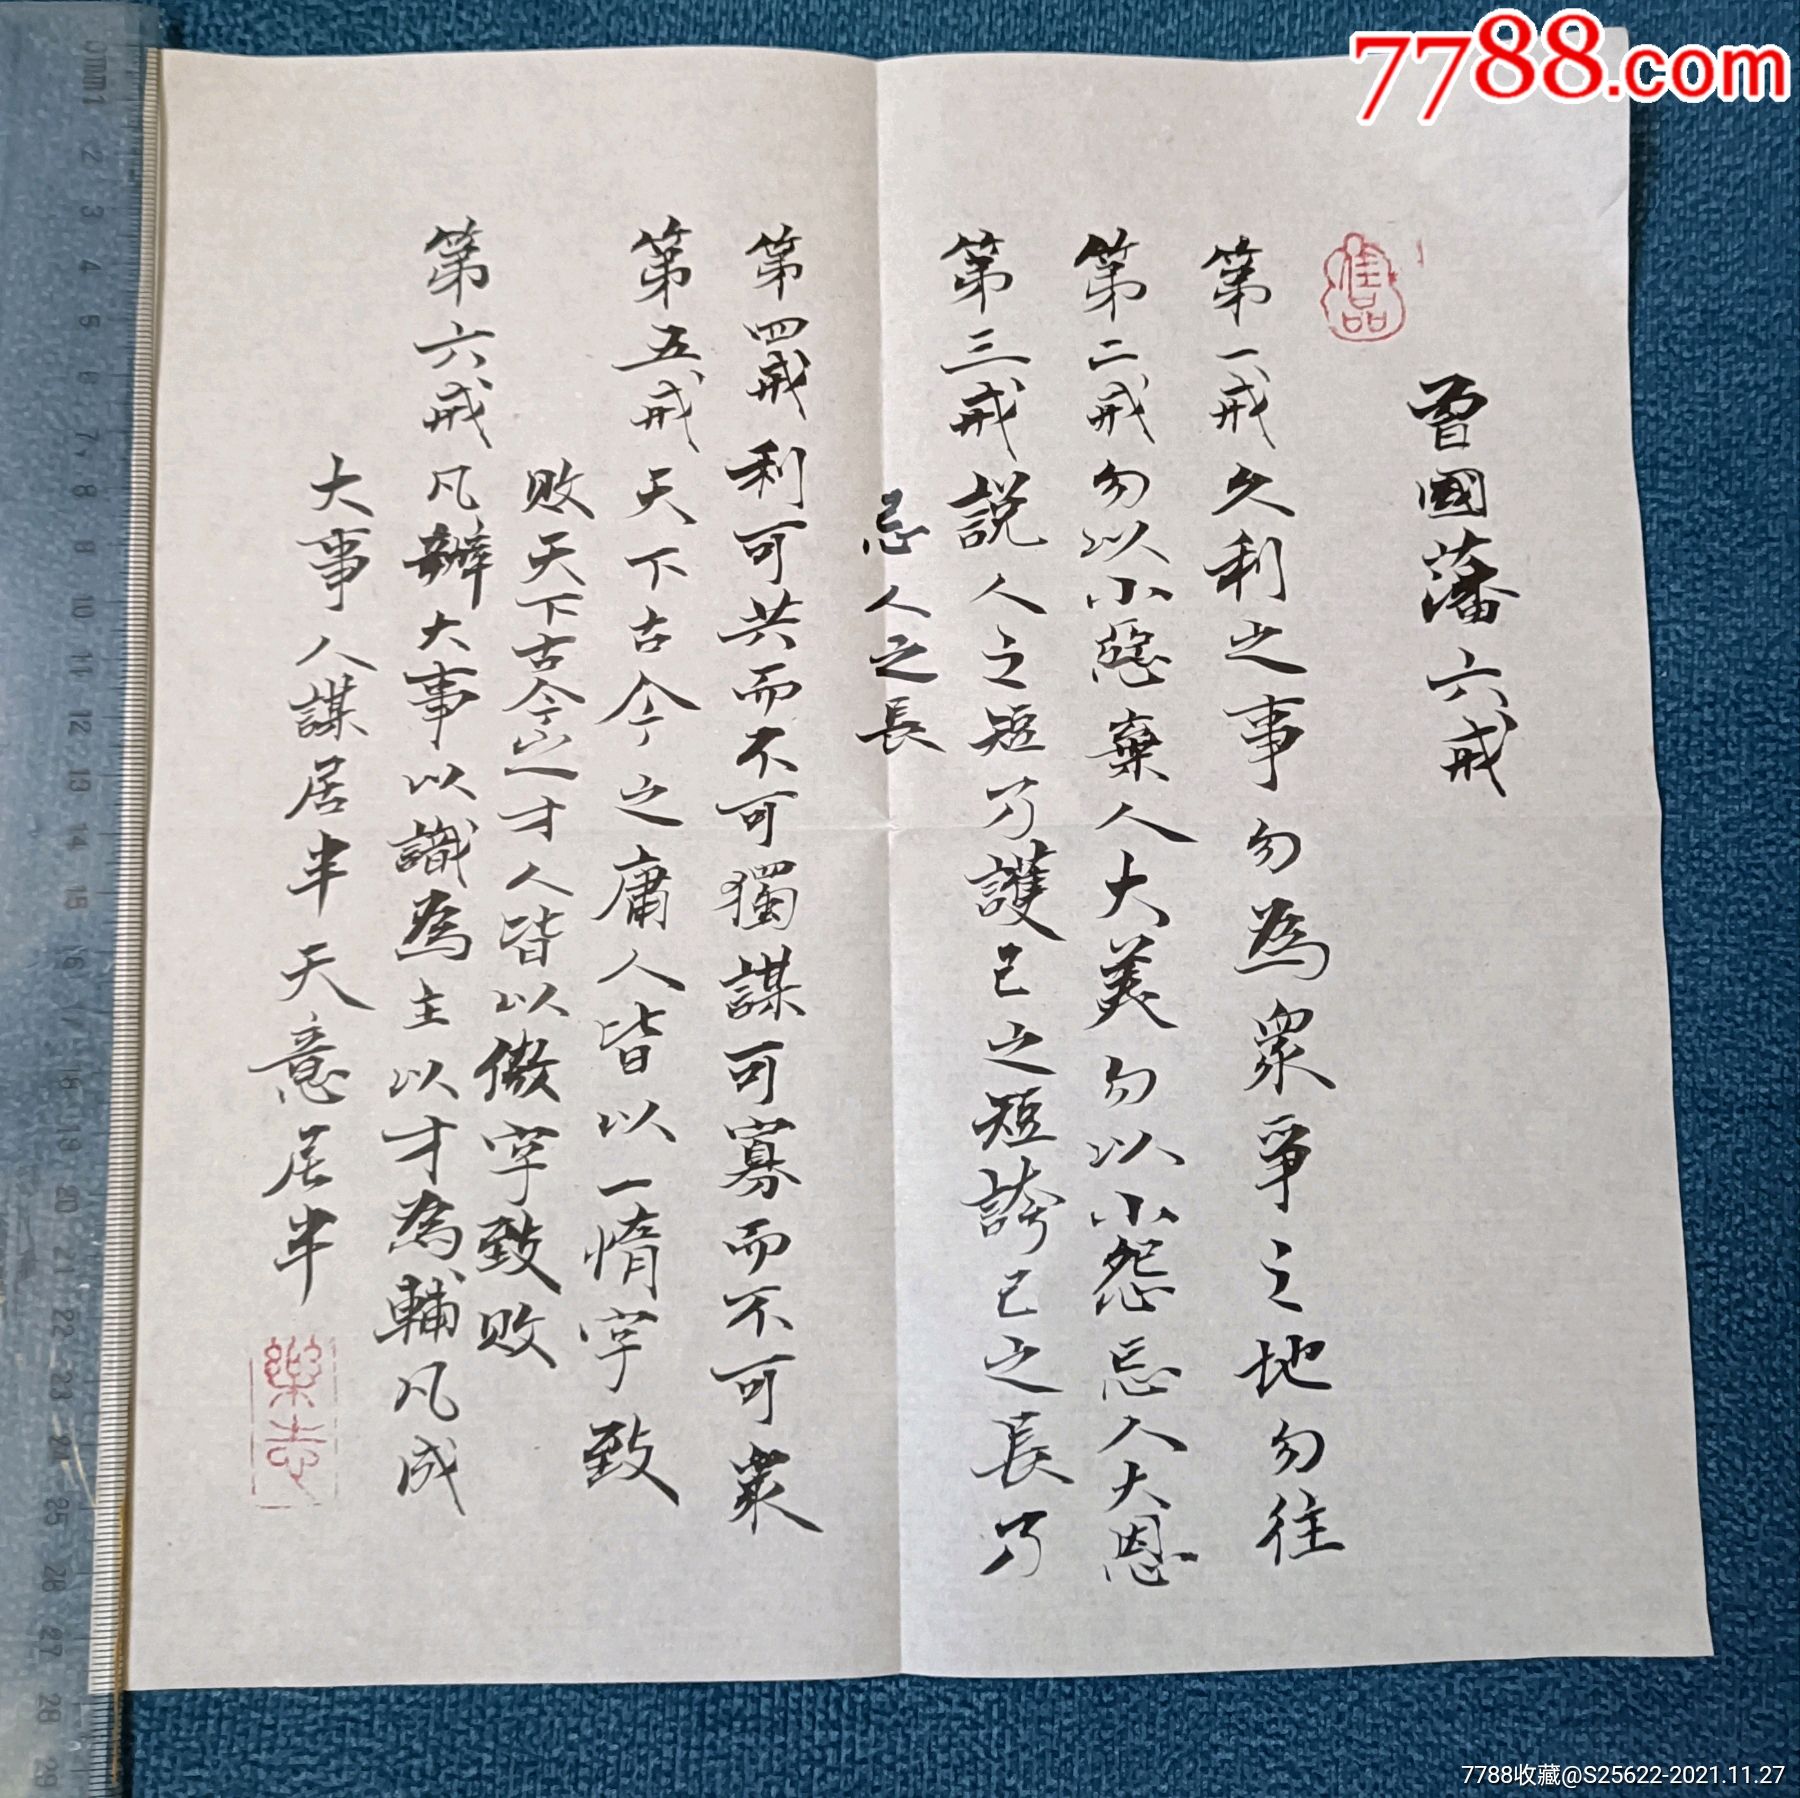 曾國藩六戒
第一戒久利之事勿為衆爭之地勿往
第二戒勿以小惡棄人大美勿以小怨忘人大恩
第三戒説人之短乃護己之短誇己之長乃
忌人之長
第四戒利可共而不可獨謀可寡而不可衆
第五戒天下古今之庸人皆以一惰字致
敗天下古今之才人皆以傲字致敗
第六戒凡辦大事以識為主以才為輔凡成
大事人謀居半天意居半
佳品
樂志
7788.com
7788收藏@S25622-2021.11.27
0mm1 2 3 4 5 6 7 8 9 10 11 12 13 14 15 16 17 18 19 20 21 22 23 24 25 26 27 28 29